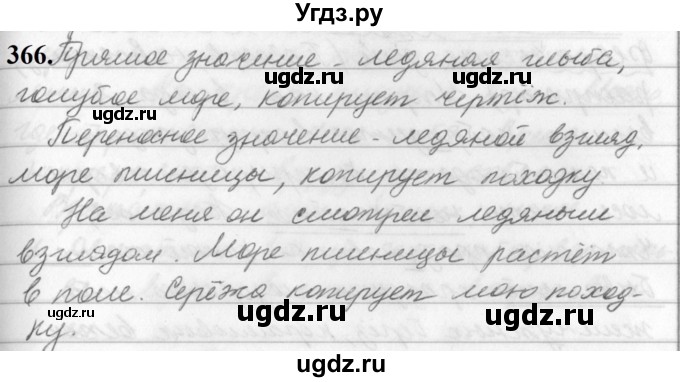 Угдз.ру
366. Прямое значение - ледяная глыба,
ugdz.ru ugdz.ru
голубое море, копирует чертёж.
Переносное значение - ледяной взгляд,
ugdz.ru ugdz.ru
море пшеницы, копирует походку.
На меня он смотрел ледяным
ugdz.ru ugdz.ru
взглядом. Море пшеницы растёт
в поле. Серёжа копирует мою поход-
ugdz.ru ugdz.ru
ку.
ugdz.ru